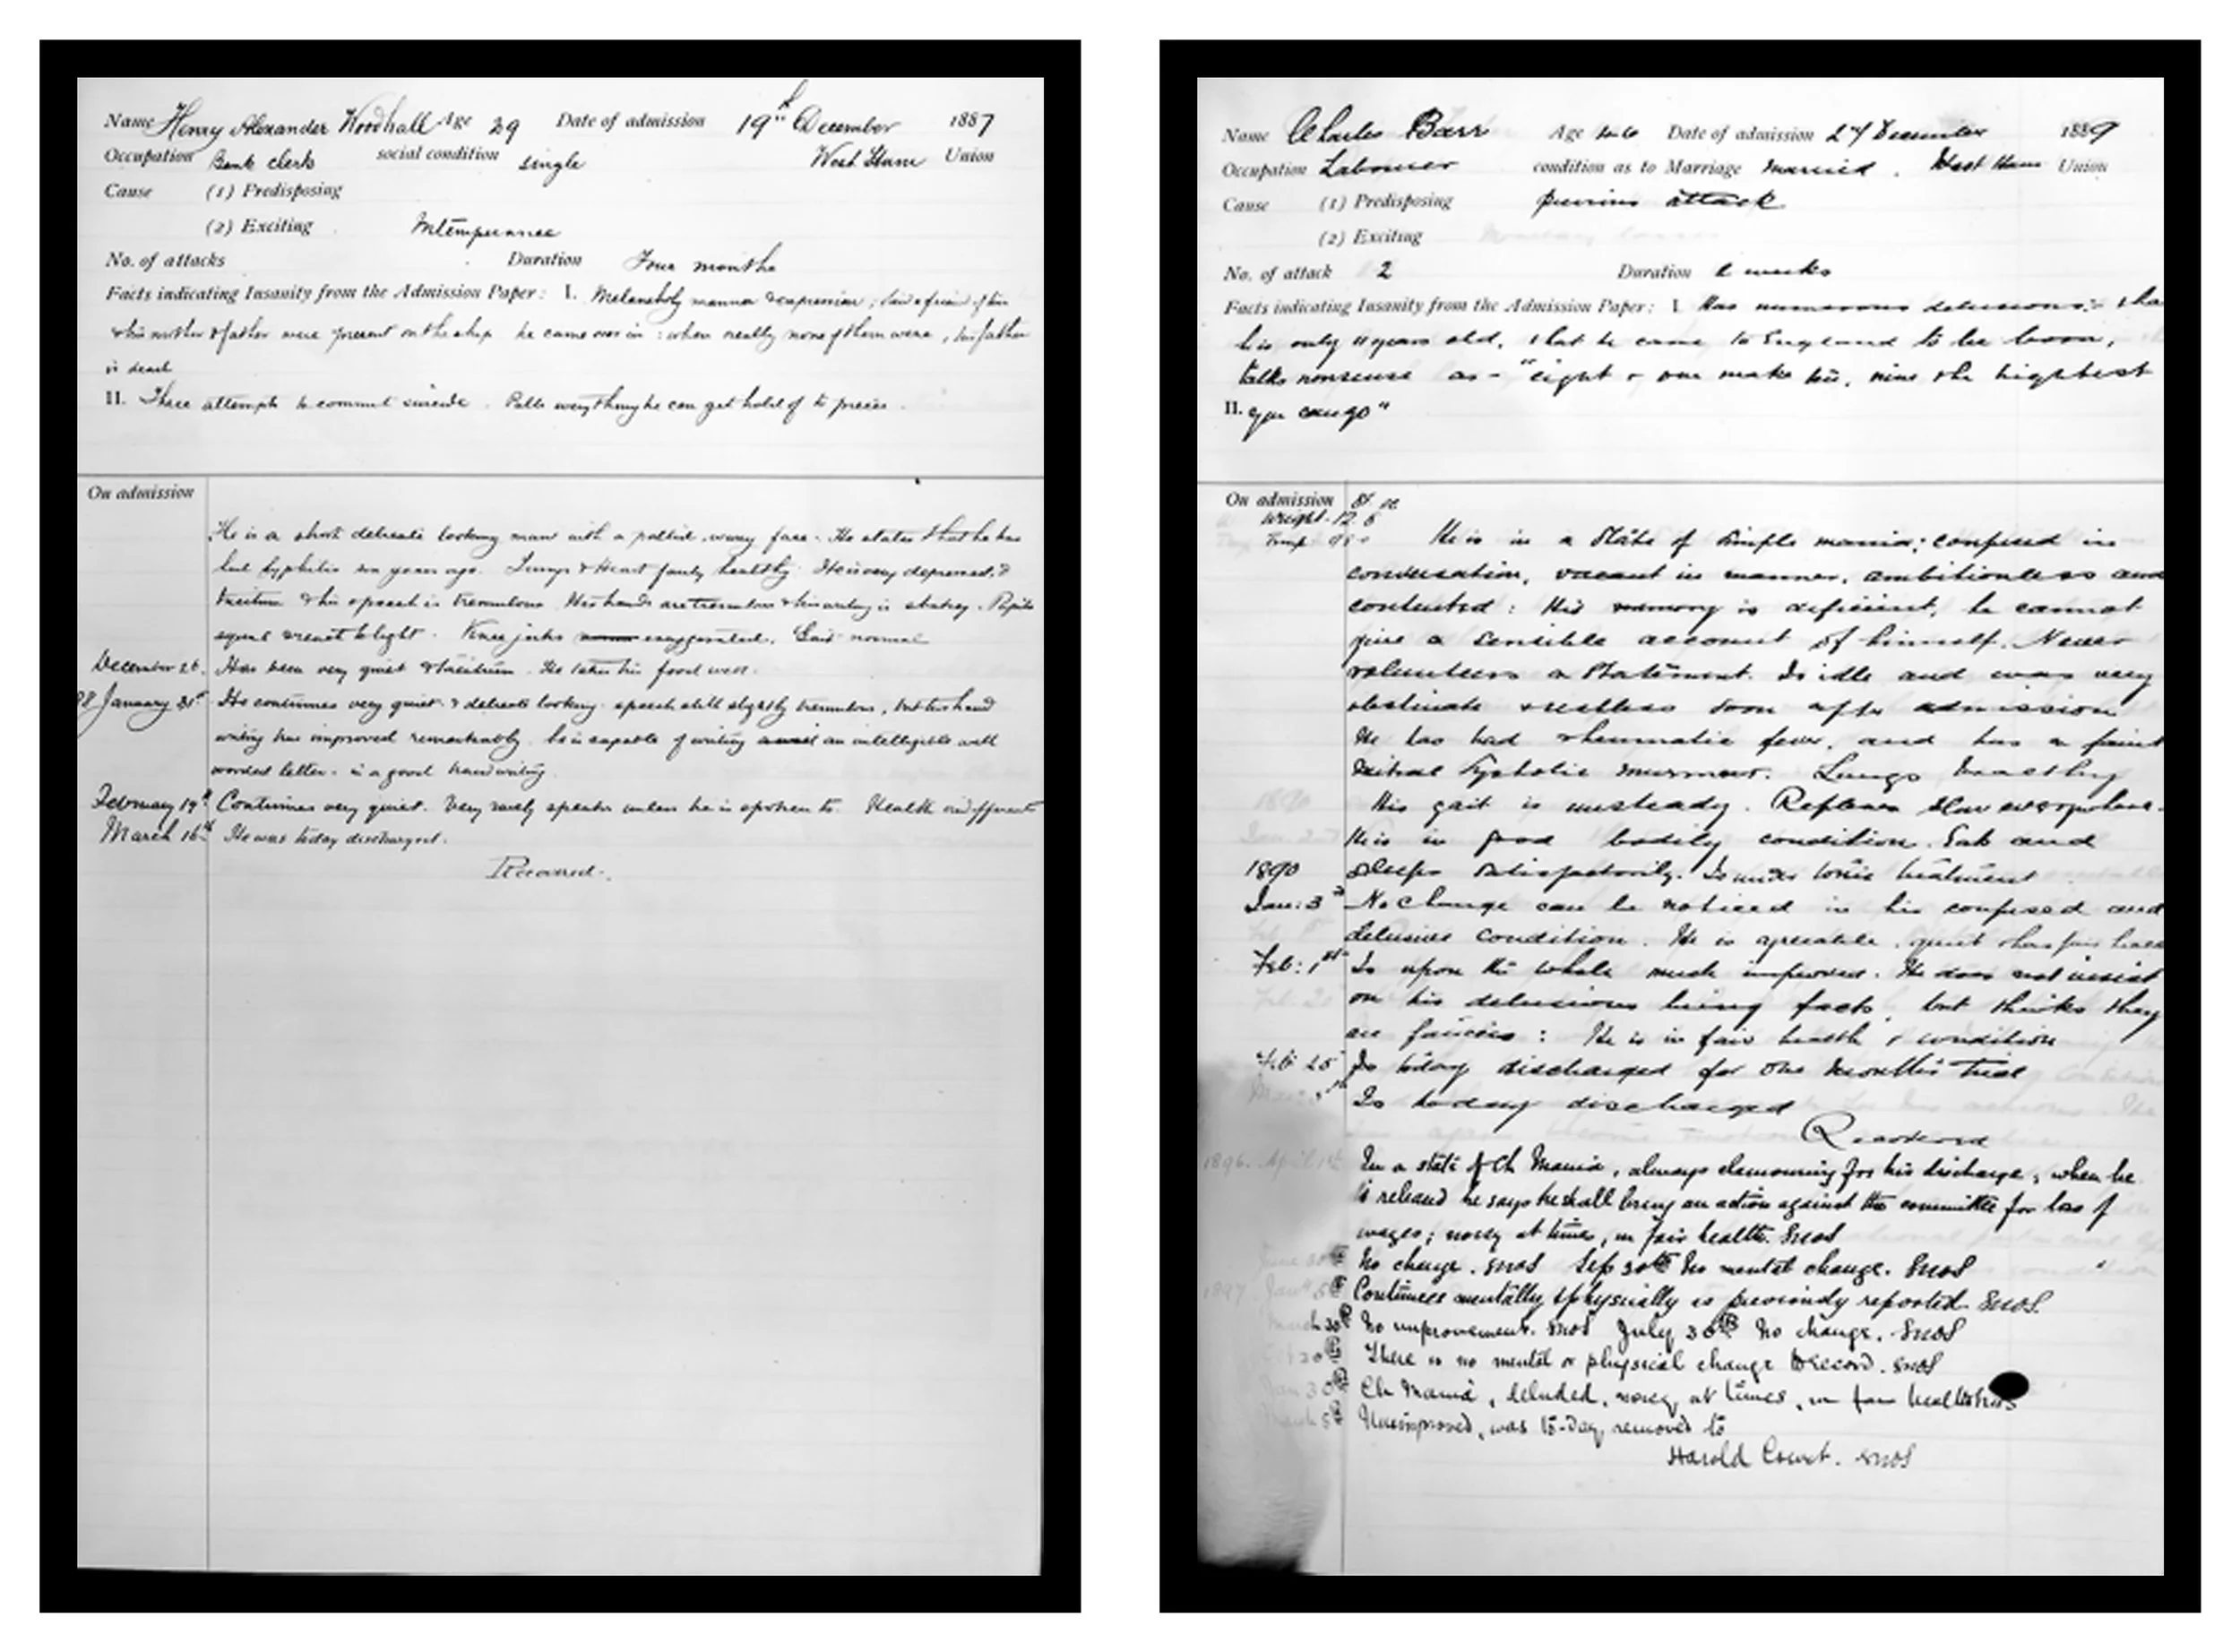 Name Henry Alexander Woodhall Age 29 Date of admission 19th December 1887
Occupation Bank clerk social condition single West Ham Union
Cause (1) Predisposing
(2) Exciting Intemperance
No. of attacks Duration Four months
Facts indicating Insanity from the Admission Paper: I. Melancholy manner & expression; said a friend of his
& his mother & father were present on the ship he came over in: when really none of them were, his father
is dead
II. Three attempts to commit suicide. Pulls everything he can get hold of to pieces.
On admission
He is a short delicate looking man with a pallid, face. He states that he has
had syphilis ten years ago. Lungs & Heart fairly healthy. He is very depressed, &
taciturn & his speech is tremulous. His hands are tremulous & his writing is shakey. Pupils
equal & react to light. Knee jerks exaggerated. Gait normal
December 26. Has been very quiet & taciturn. He takes his food well.
88 January 31st He continues very quiet & delicate looking. speech still slightly tremulous, but his hand
writing has improved remarkably. he is capable of writing an intelligible well
worded letter in a good handwriting.
February 19th Continues very quiet. Very rarely speaks unless he is spoken to. Health indifferent
March 16th He was today discharged.
Recovered.
Name Charles Barr Age Date of admission 27 December 1889
Occupation Labourer condition as to Marriage Married. West Ham Union
Cause (1) Predisposing previous attack
(2) Exciting
No. of attack 2 Duration weeks
Facts indicating Insanity from the Admission Paper: I. Has numerous delusions: tha
he is only 11 years old, that he came to England to be born,
talks nonsense as - "eight & one make ten, nine the highest
II. you can go"
On admission
Weight. 12. 6
Temp He is in a State of Simple mania: confused in
conversation, vacant in manner, ambitionless and
contented: His memory is deficient, he cannot
give a sensible account of himself. Never
volunteers a Statement. Is idle and was very
obstinate & restless soon after admission
He has had rheumatic fever, and has a faint
Mitral Systolic murmur. Lungs healthy
His gait is unsteady. Reflexes slow everywhere.
He is in good bodily condition. Eats and
1890 sleeps satisfactorily. Is under tonic treatment
Jan: 3rd No Change can be noticed in his confused and
delusive condition. He is quiet & has fair
Feb: 1st Is upon the whole much improved. He does not insist
on his delusions being facts, but thinks they
are fancies: He is in fair health & condition
Feb 25 Is today discharged for one months trial
Is today discharged
Recovered
1896. April 1st In a state of Ch Mania, always clamouring for his discharge; when he
is released he says he shall bring an action against the committee for loss of
wages; noisy at times, in fair health.
June 30th No change. Sep 30th No mental change.
1897 Jany 5th Continues mentally & physically as previously reported.
March 30th No improvement. July 30th No change.
Oct 30th There is no mental or physical change to record.
Jan 30th Ch Mania, deluded, noisy at times, in fair health
March 5th Unimproved, was to-day removed to
Harold Court.